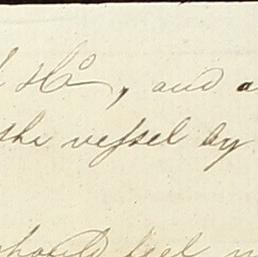 and a
the vessel by
should feel